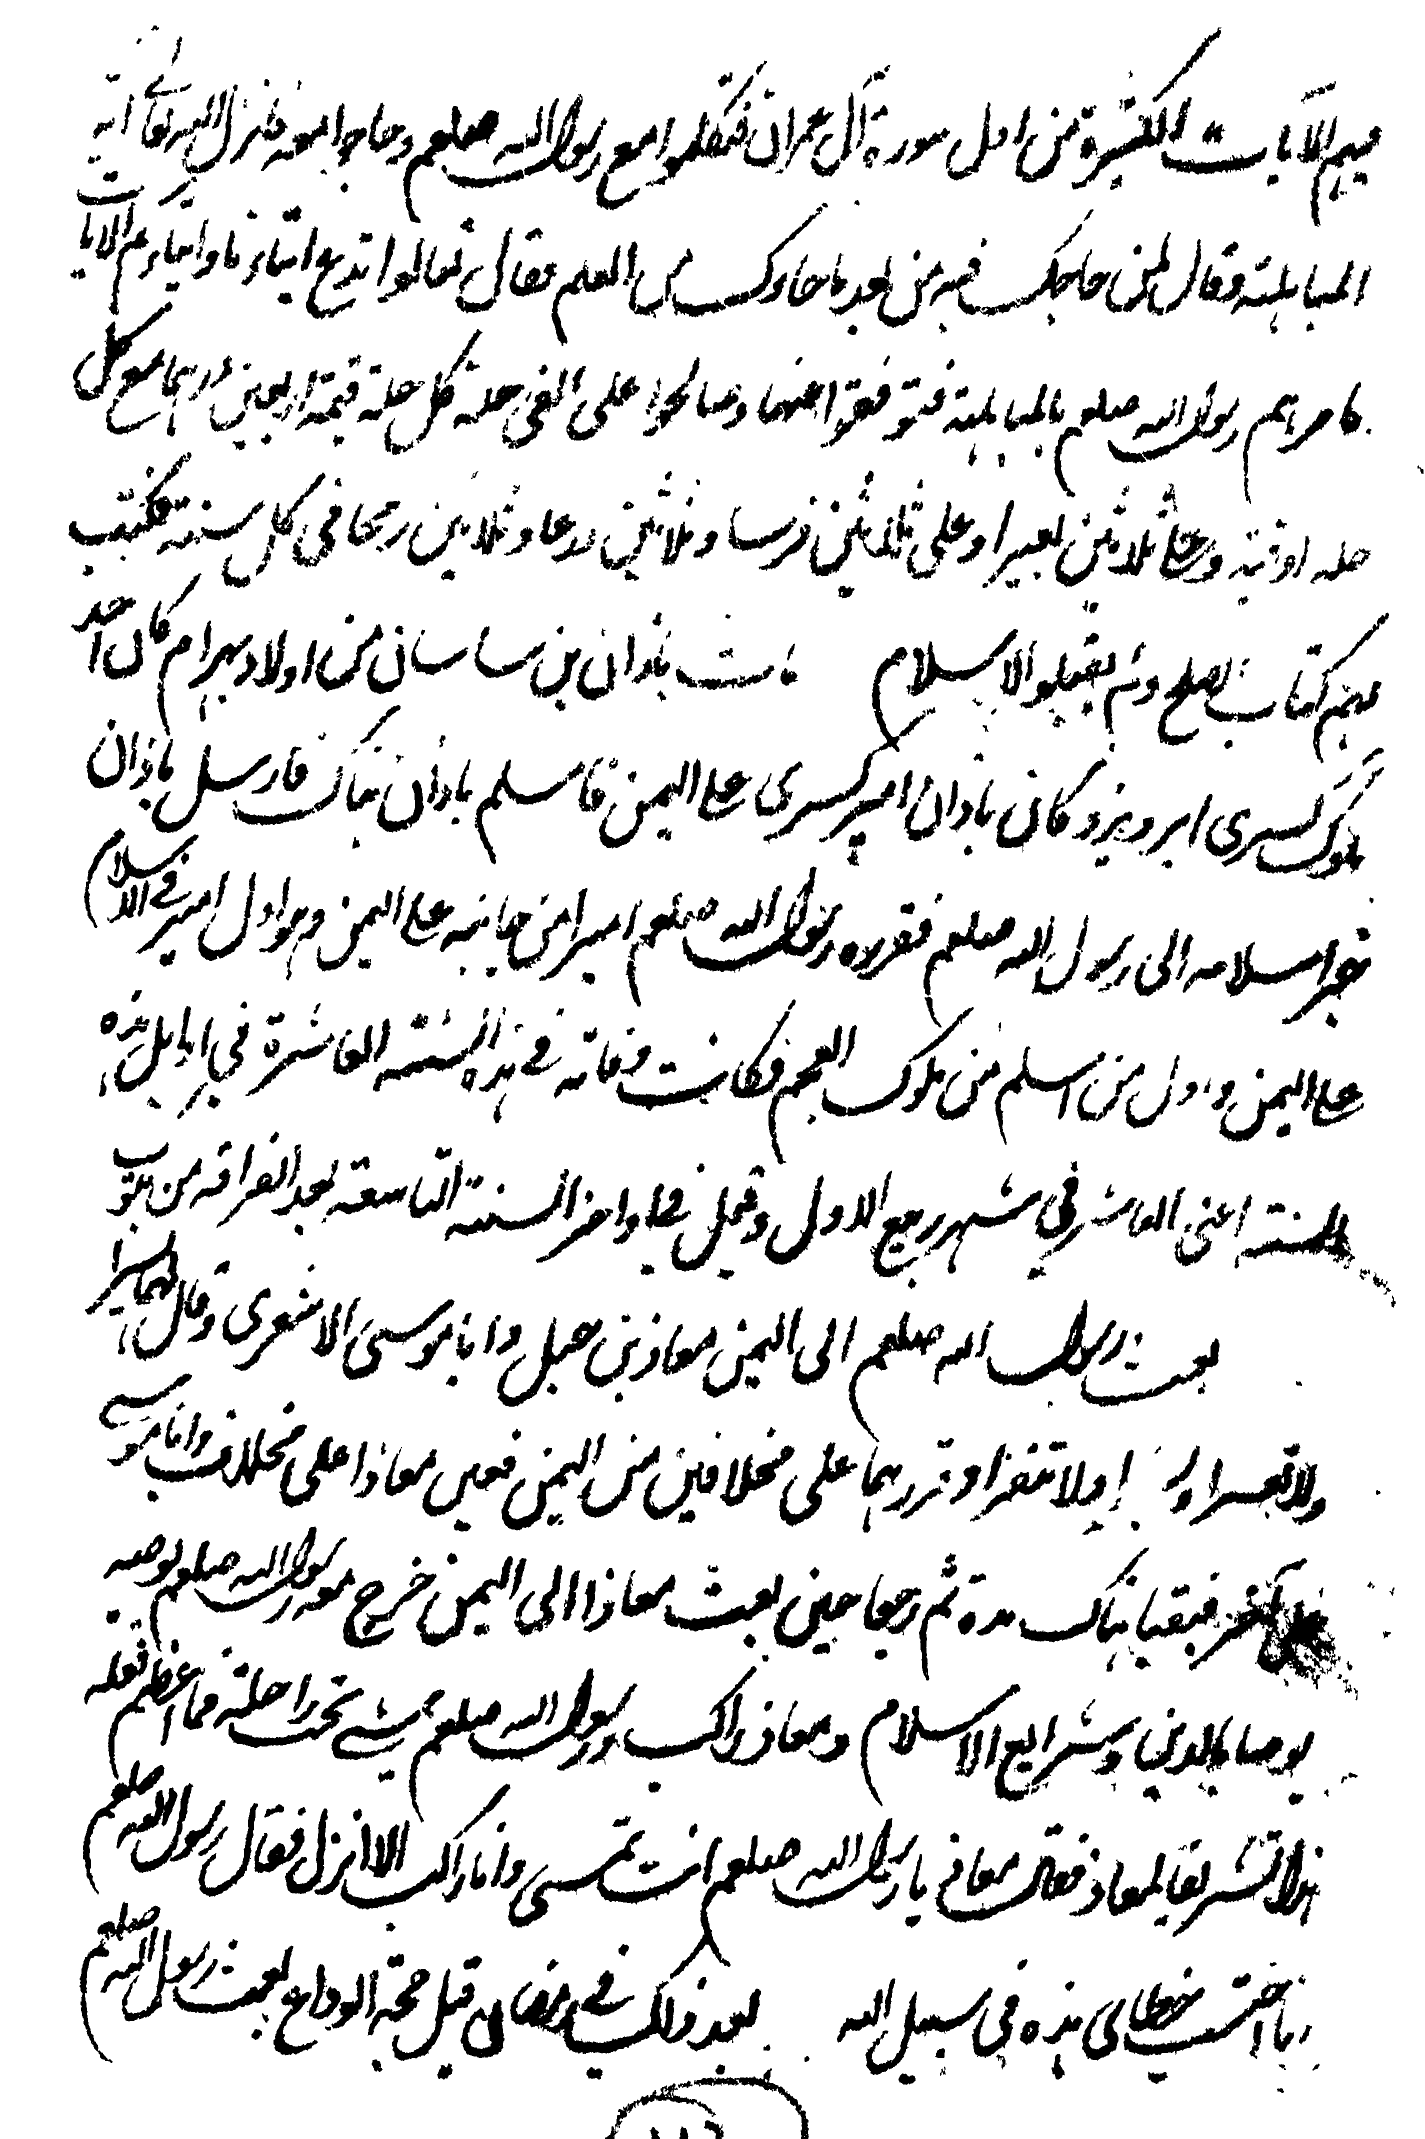 فيهم الآيات الكثيرة من اول سورة آل عمران فتكلموا مع رسول الله صلعم وحاجوا معه فانزل الله تعالى آية
المباهلة وقال فمن حاجك فيه من بعد ما جاءك من العلم فقال تعالوا ندع ابناءنا وابناءكم الايات
فامرهم رسول الله صلعم بالمباهلة فتوقفوا عنها وصالحوا على الفي حلة كل حلة قيمة اربعين درهما مع كل
حلة اوقية وعلى ثلاثين بعيرا وعلى ثلاثين فرسا وثلاثين درعا وثلاثين رمحا في كل سنة فكتب
لهم كتاب الصلح ولم يقبلوا الاسلام مات باذان بن ساسان من اولاد بهرام كان احد
ملوك كسرى ابرويز وكان باذان امير كسرى على اليمن فاسلم باذان هناك فارسل باذان
خبر اسلامه الى رسول الله صلعم فقرره رسول الله صلعم اميرا من جانبه على اليمن وهو اول امير في الاسلام
على اليمن و اول من اسلم من ملوك العجم فكانت وفاته في هذه السنة العاشرة في اوايل هذه
السنة اعني العاشر في شهر ربيع الاول وقيل في اواخر السنة التاسعة بعد انصرافه من تبوك
بعث رسول الله صلعم الى اليمن معاذ بن جبل وابا موسى الاشعري وقال لهما يسرا
ولا تعسرا و ولا تنفرا وقررهما على مخلافين من اليمن فعين معاذا على مخلاف وابا موسى
على آخر فبقيا هناك مدة ثم رجعا حين بعث معاذا الى اليمن خرج معه رسول الله صلعم يوصيه
بوصايا الدين وشرايع الاسلام ومعاذ راكب ورسول الله صلعم يمشي تحت راحلته فما اعظم فعله
هذا تشريفا لمعاذ فقال معاذ يا رسول الله صلعم انت تمشي وانا راكب الا انزل فقال رسول الله صلعم
احتسب خطاي هذه في سبيل الله بعد ذلك في رمضان قبل حجة الوداع بعث رسول الله صلعم